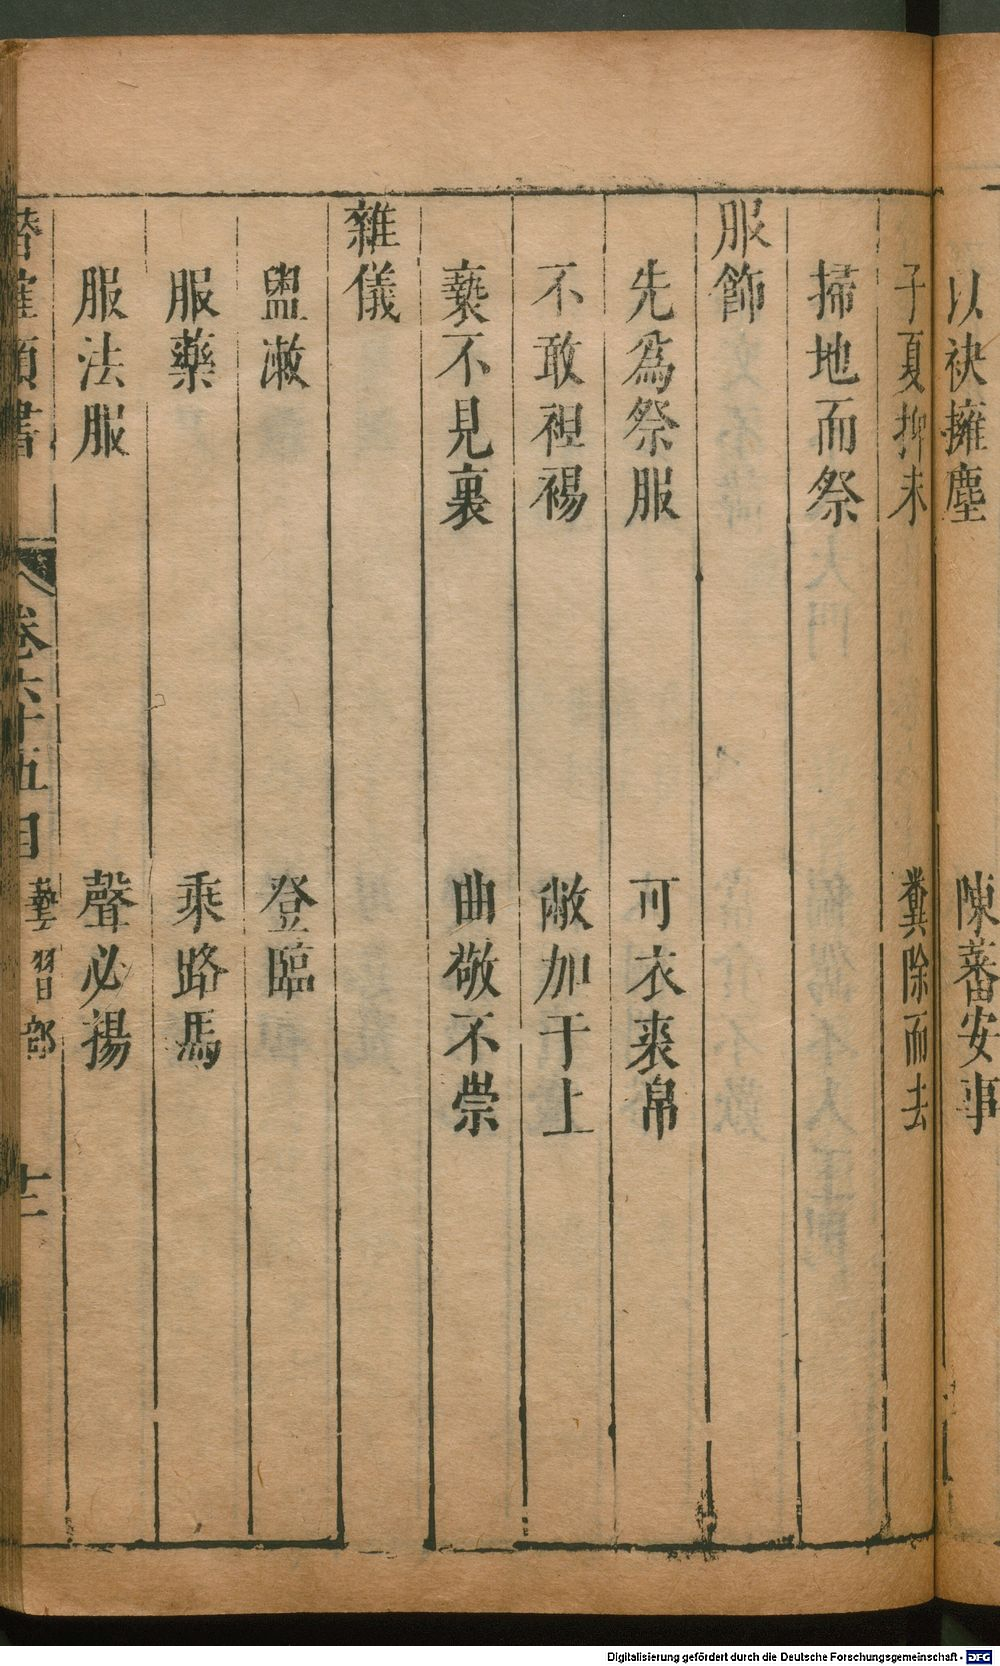 以袂擁塵　陳蕃安事
子夏抑末　糞除而去
掃地而祭
服飾
先爲祭服　可衣裘帛
不敢袒裼　敝加于上
褻不見裏　曲敬不崇
雜儀
盥漱　登臨
服藥　乘路馬
服法服　聲必揚
潛確類書　卷六十五目　藝習部　十二
Digitalisierung gefördert durch die Deutsche Forschungsgemeinschaft - DFG